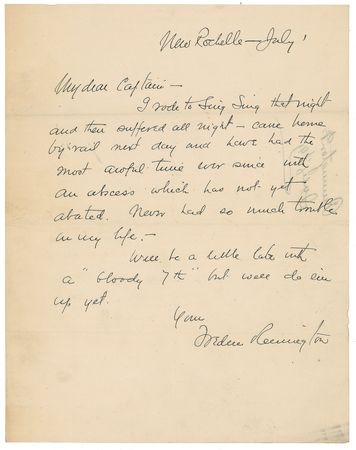 New Rochelle — July 1
My dear Captain —
I rode to Sing Sing that night
and then suffered all night — came home
by rail next day and have had the
most awful time ever since with
an abscess which has not yet
abated. Never had so much trouble
in my life. —
Will be a little late with
a "bloody 7th" but will do em
up yet.
Yours
Frederic Remington